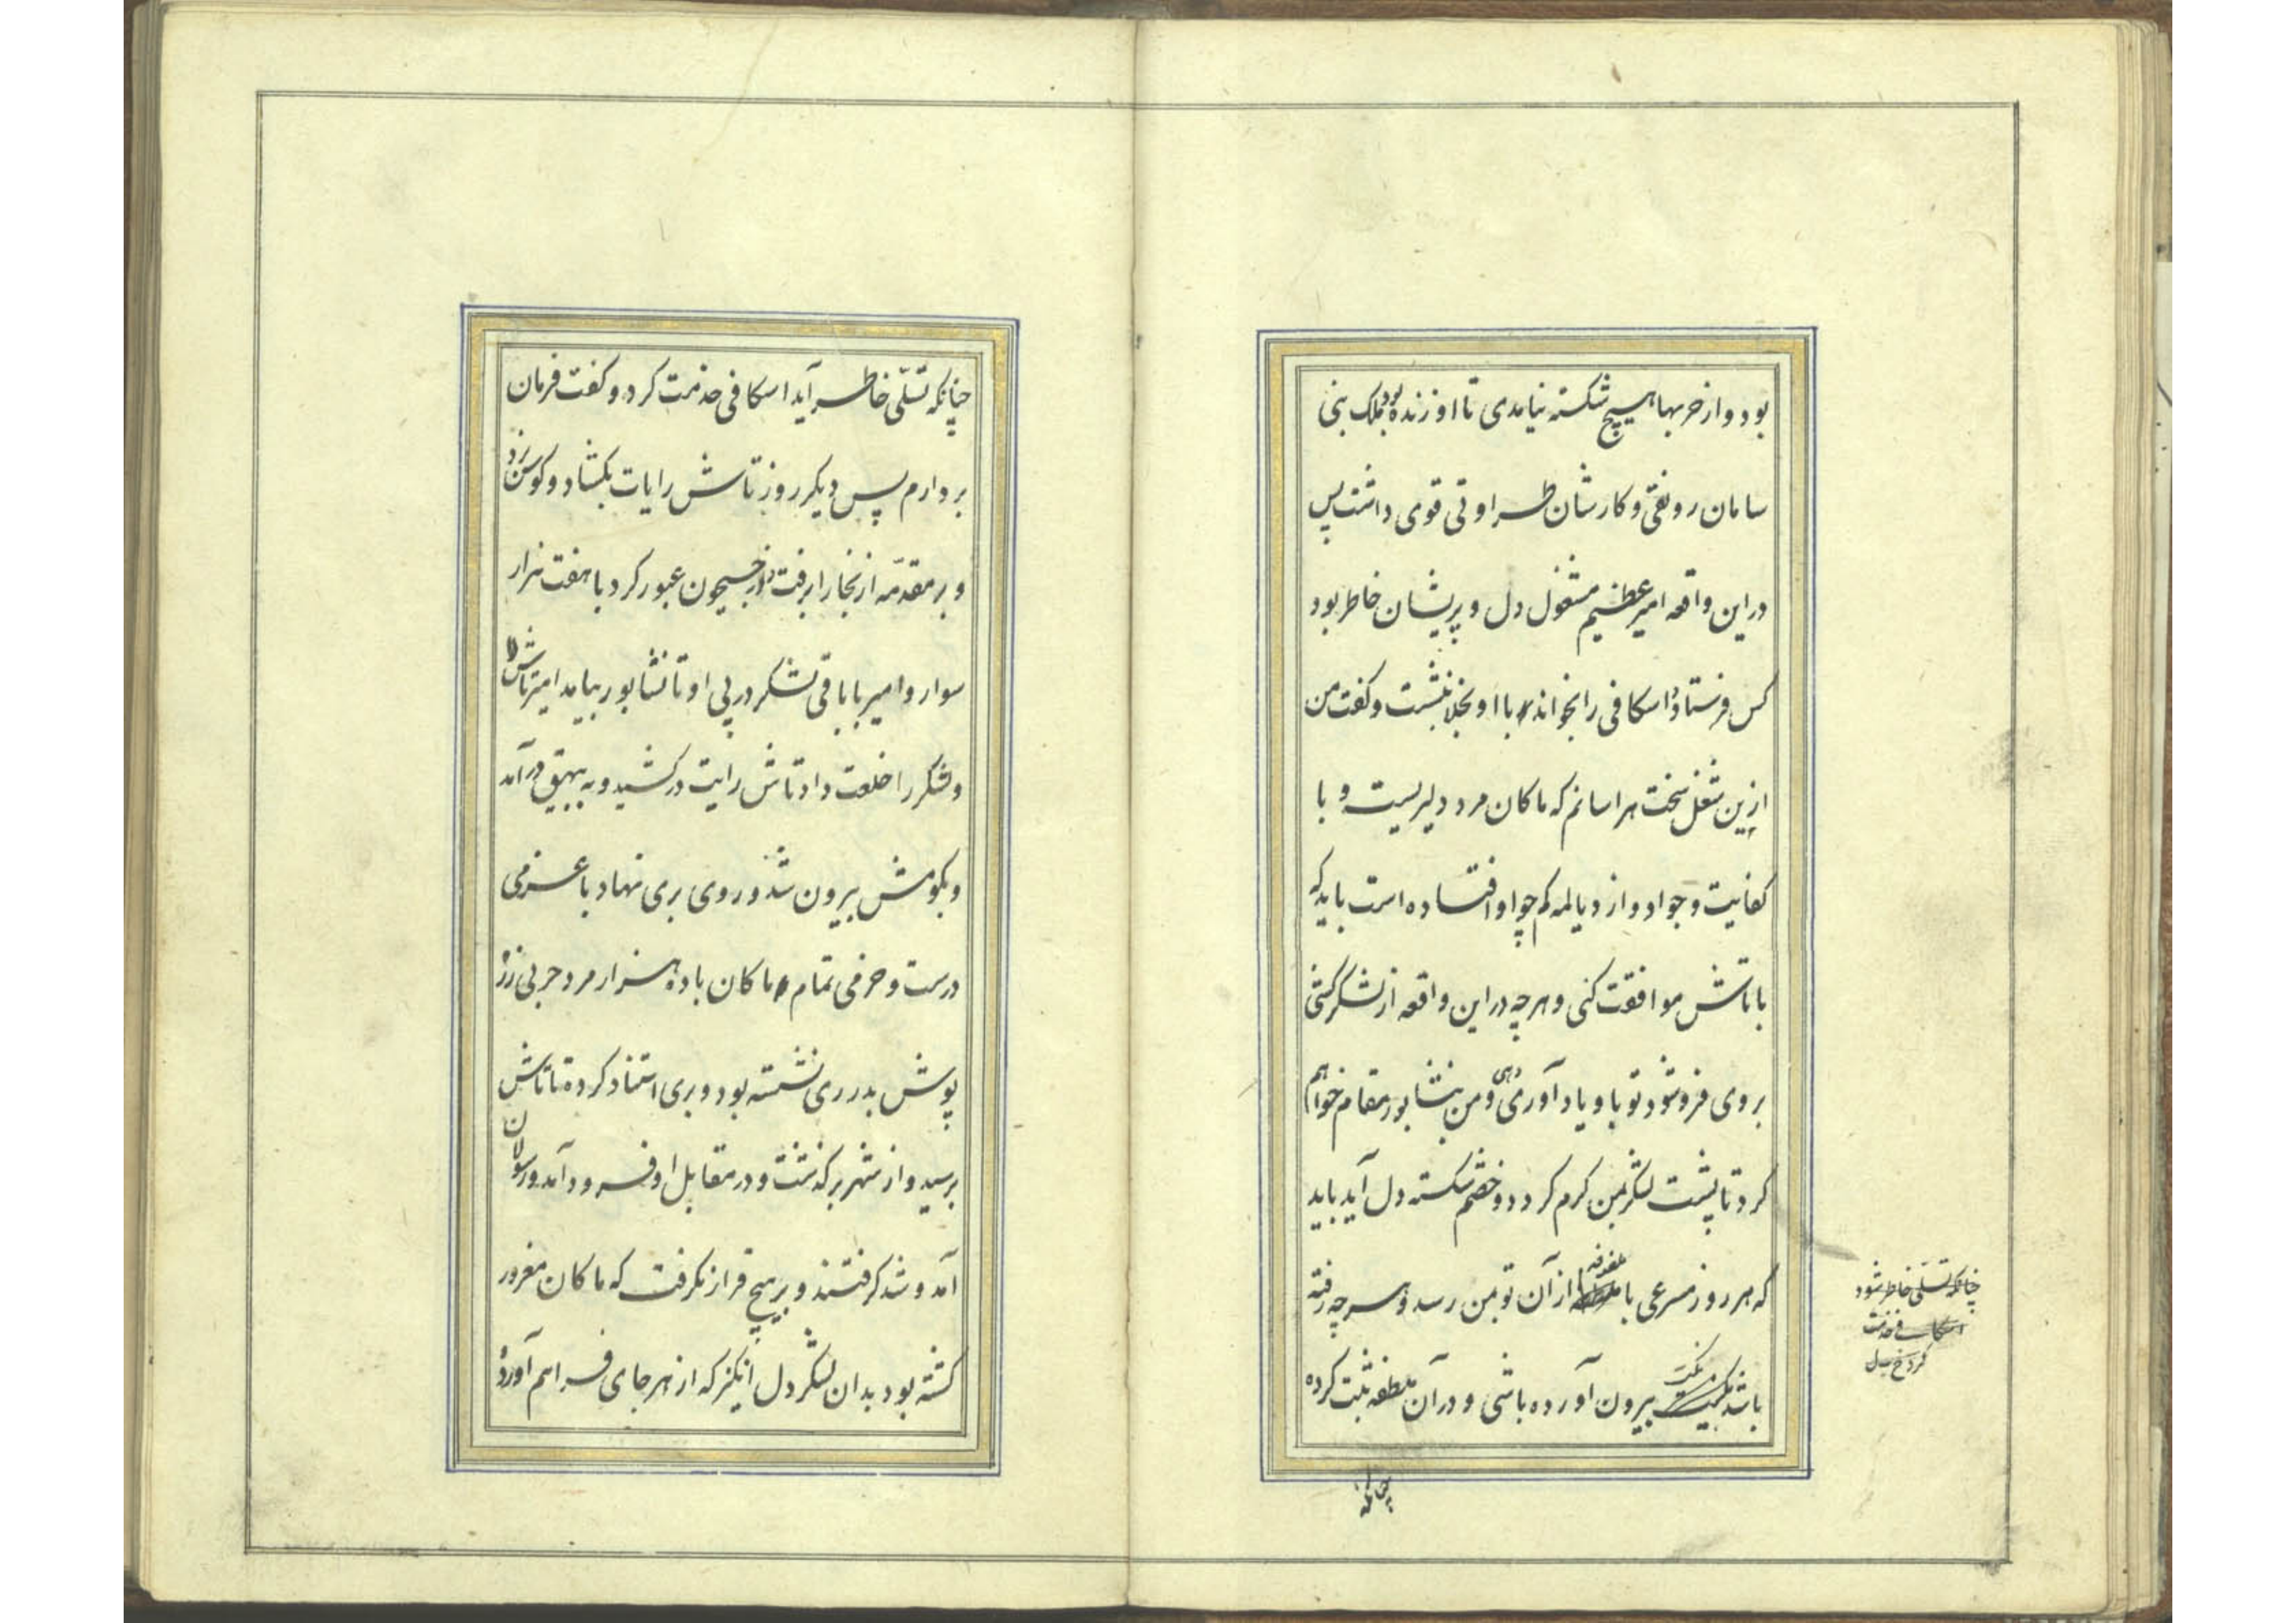 بود و از حربها هیچ شکسته نیامدی تا او زنده بود ملک بنی
سامان رونقی و کارشان طراوتی قوی داشت پس
در این واقعه امیر عظیم مشغول دل و پریشان خاطر بود
کس فرستاد و اسکافی را بخواند و با او بخلا بنشست و گفت من
ازین شغل سخت هراسانم که ماکان مرد دلیریست و با
کفایت و جواد و از دیالمه کم چو او افتاده است باید که
با تاش موافقت کنی و هر چه در این واقعه از لشکر کشی
بروی فرو شود تو با و یاد آوری دهی و من بنشابور مقام خواهم
کرد تا پشت لشکر بمن گرم گردد و خصم شکسته دل آید باید
که هر روز مسرعی با ملطفه از آن تو بمن رسد و هر چه رفته
باشد نکت بیرون آورده باشی و در آن ملطفه ثبت کرده
چنانکه تسلی خاطر شود
اسکافی خدمت
کرد
چنانکه
چنانکه تسلّی خاطر آید اسکافی خدمت کرد و گفت فرمان
بردارم پس دیگر روز تاش رایات بگشاد و کوس بزد
و بر مقدمّه از بخارا برفت و از جیحون عبور کرد با هفت هزار
سوار و امیر با باقی لشکر در پی او تا نشابور بیامد امیر تاش را
و لشکر را خلعت داد تاش رایت در کشید و به بیهق در آمد
و بکومش بیرون شد و روی بری نهاد با عزمی
درست و حزمی تمام و ماکان با ده هزار مرد حربی زره
پوش بدر ری نشسته بود و بری استناد کرده تا تاش
برسید و از شهر بر گذشت و در مقابل او فرود آمد و رسولان
آمد و شد گرفتند و بر هیچ قرار نگرفت که ماکان مغرور
گشته بود بدان لشکر دل انگیز که از هر جای فراهم آورده